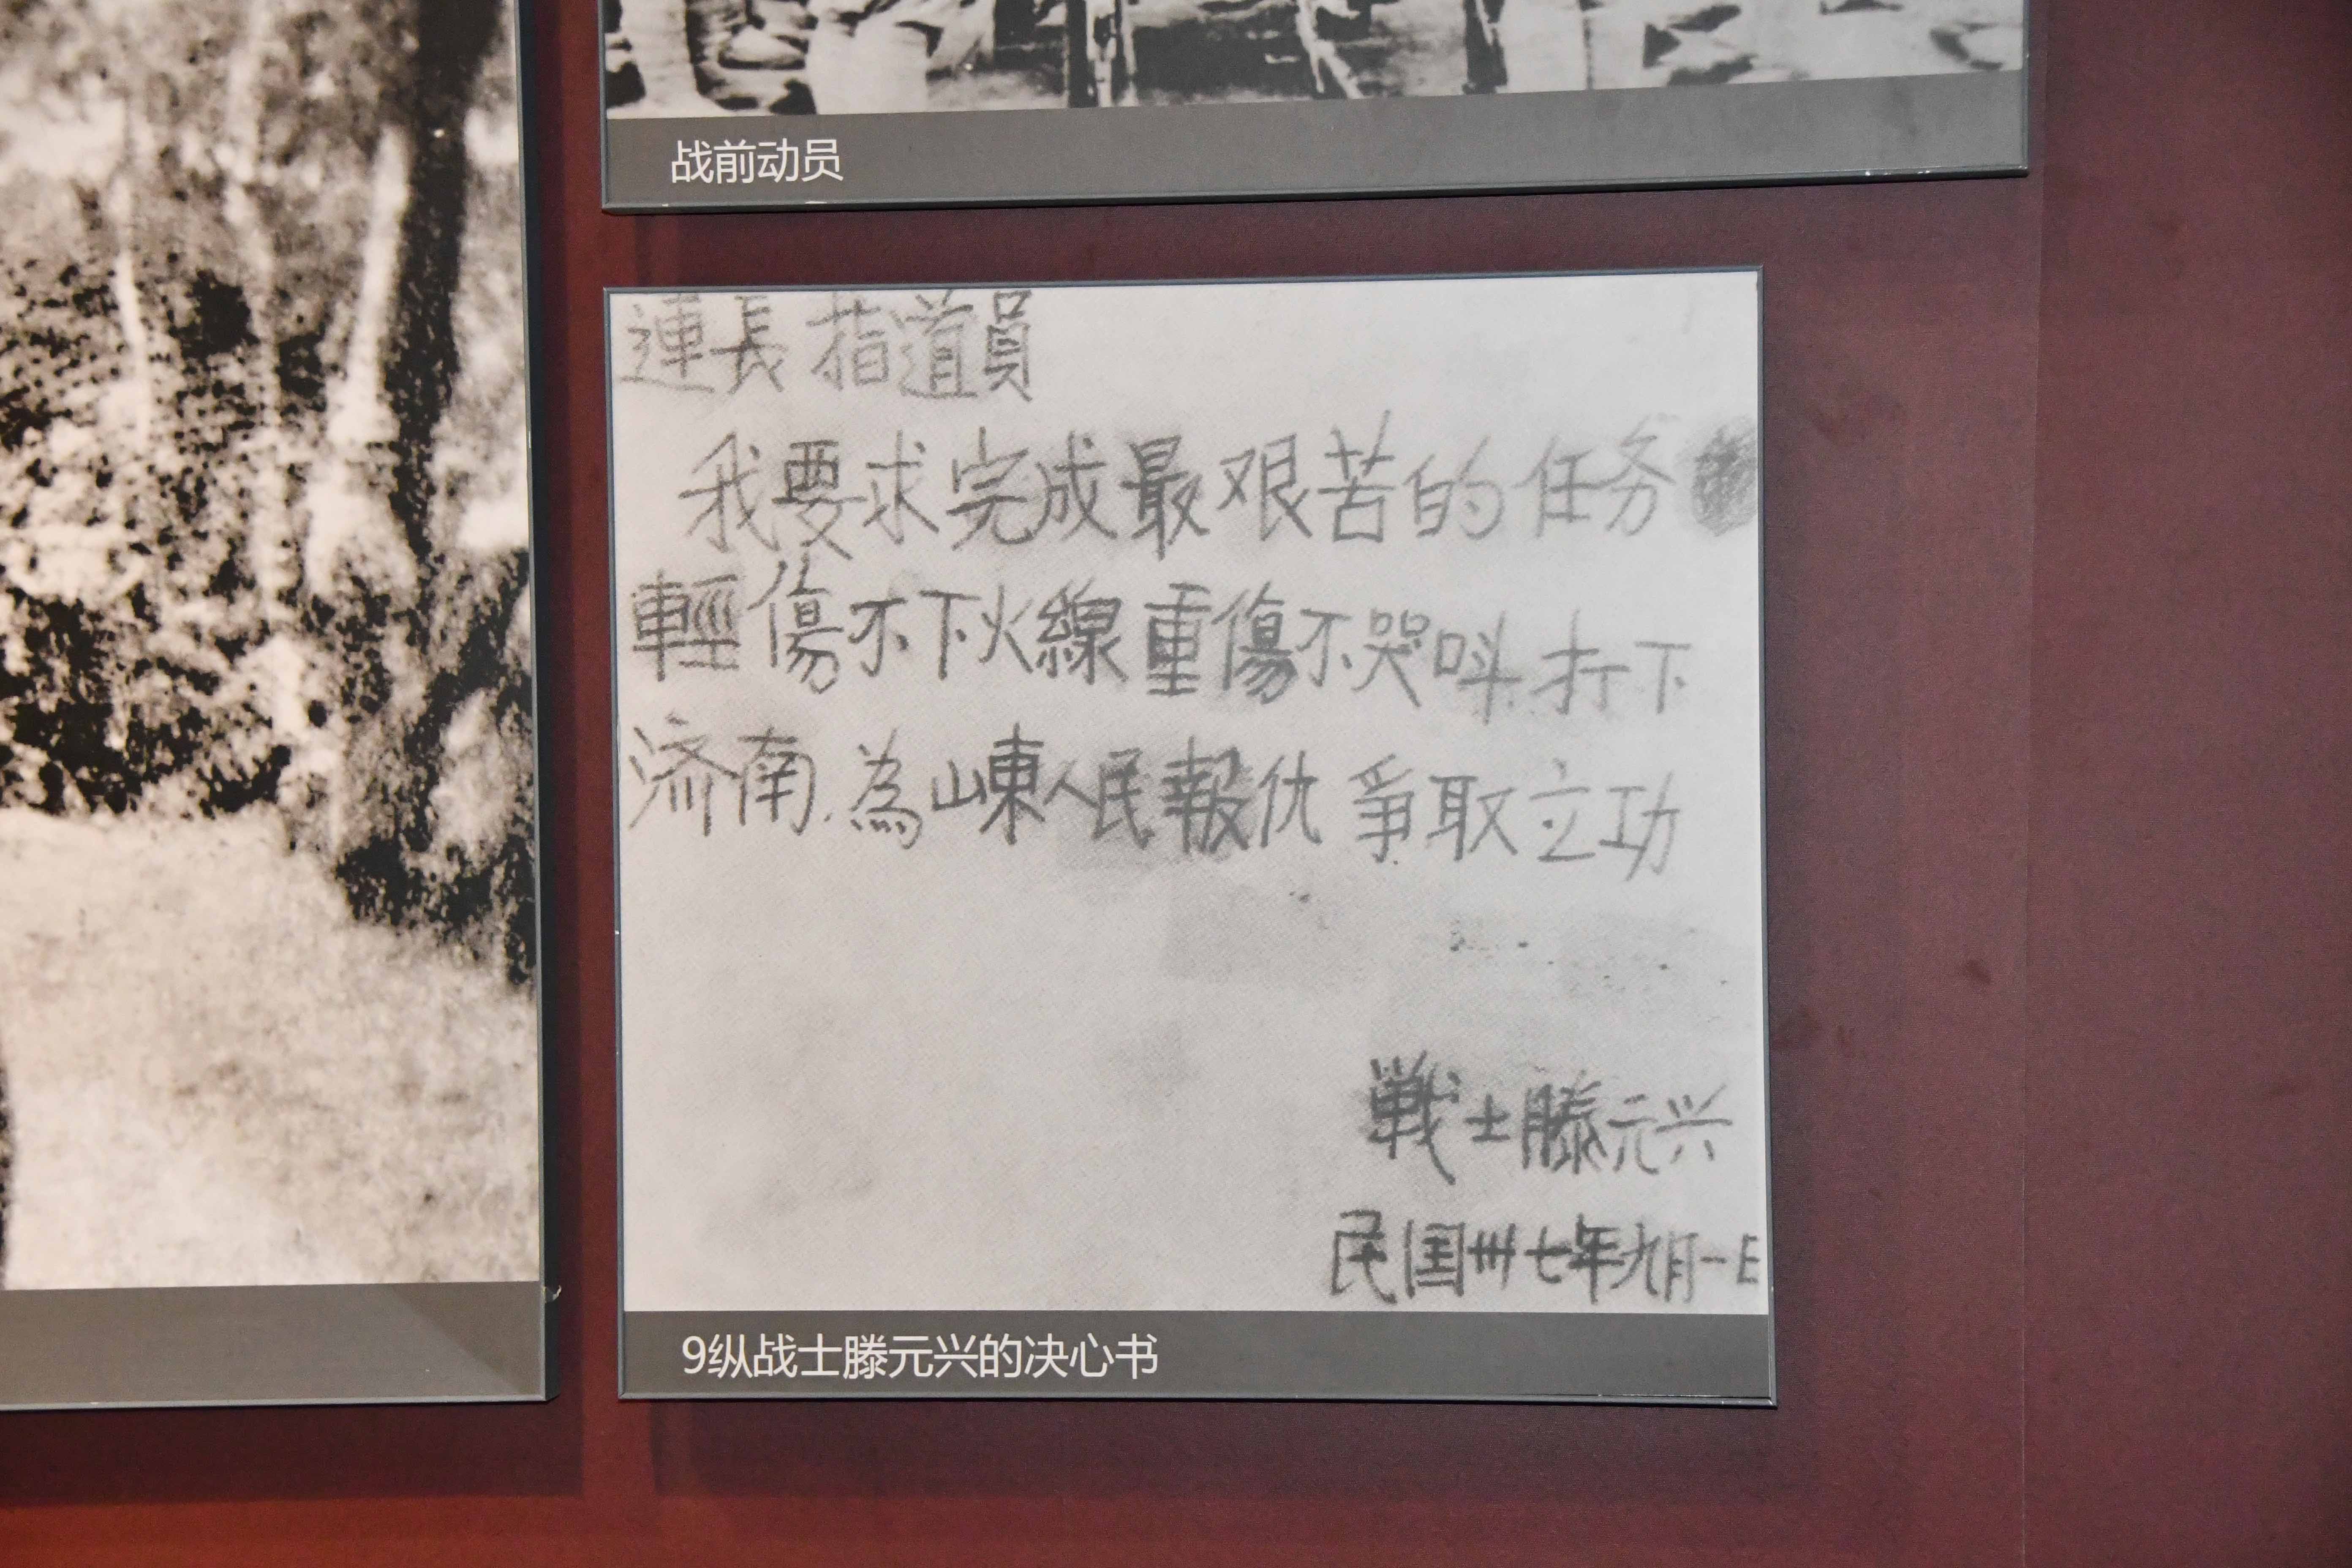 战前动员
連長指道員
我要求完成最艰苦的任务
輕傷不下火線重傷不哭呌打下
济南.為山東人民報仇爭取立功
戰士滕元兴
民国卅七年九月一日
9纵战士滕元兴的决心书